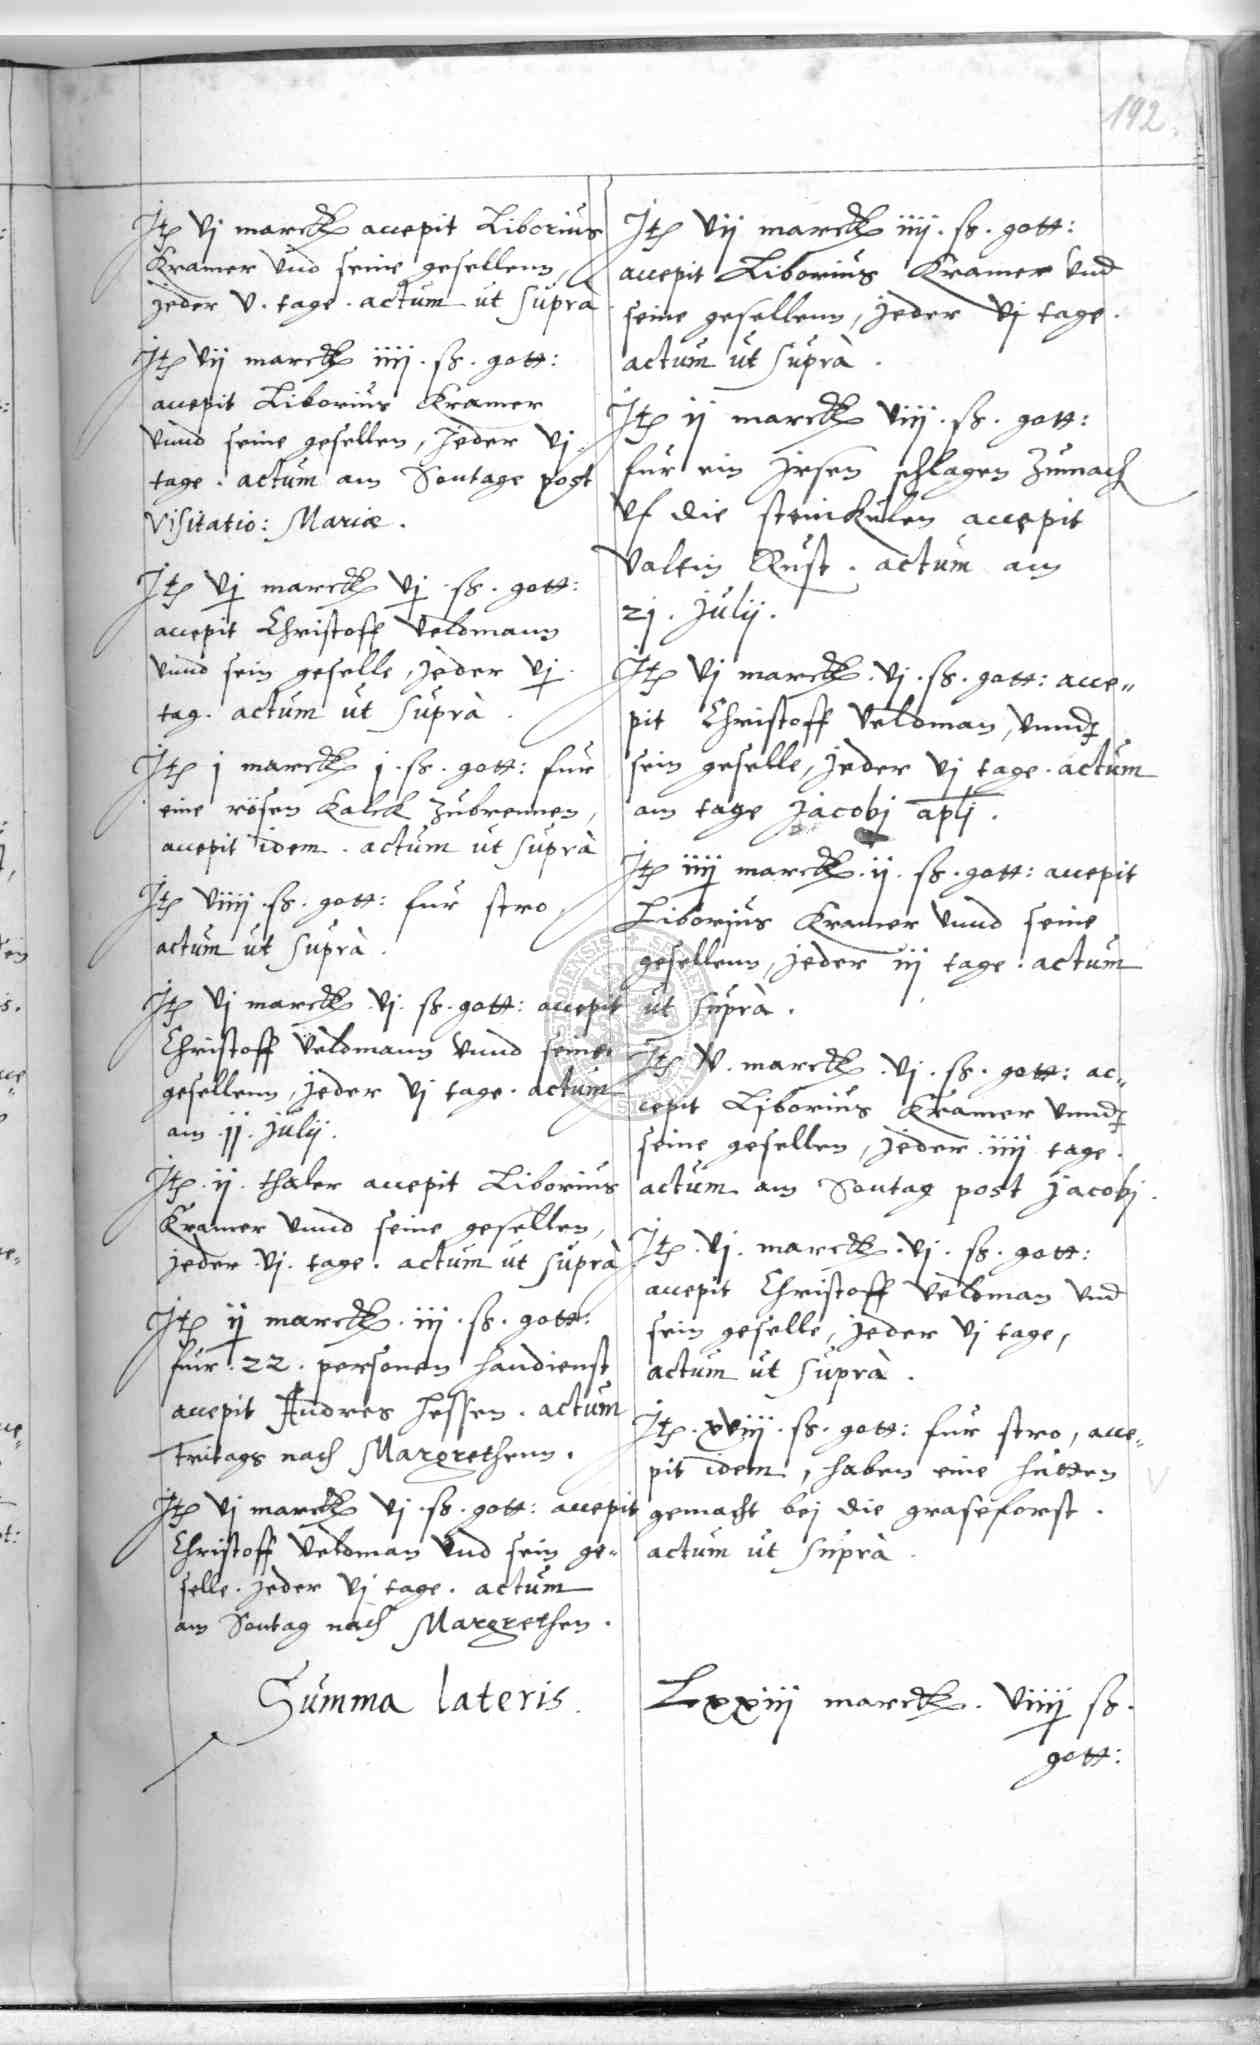 192.
Jtz vj marck accepit Liborius
Kramer vnd seine gesellenn,
jeder v. tage. actum ut suprà
Jtz vij marck iiij. ß. gott:
accepit Liborius Kramer
vnnd seine gesellen, jeder vj.
tage. actum am Sontage post
Visitatio: Mariæ.
Jtz vj marck vj. ß. gott:
accepit Christoff Veldmann
vnnd sein geselle, jeder vj.
tag. actum ut suprà.
Jtz j marck j. ß. gott: fur
eine rösen Kalck zubrennen,
accepit idem. actum ut suprà
Jtz viiij. ß. gott: fur stro,
actum ut suprà.
Jtz vj marck. vj. ß. gott: accepit
Christoff Veldmann vnnd seine
gesellenn, jeder vj tage. actum
am jj. julij.
Jtz. ij. thaler accepit Liborius
Kramer vnnd seine gesellen,
jeder. vj. tage. actum ut suprà
Jtz ij marck. iij. ß. gott:
fur. 22. personen handienst
accepit Andres Hessen. actum
Fritags nach Margrethenn.
Jtz vj marck vj. ß. gott: accepit
Christoff Veldman vnd sein ge-
selle. jeder vj tage. actum
am Sontag nach Margrethen.
Summa lateris.
Jtz vij marck iiij. ß. gott:
accepit Liborius Kramer vnd
seine gesellenn, jeder vj tage.
actum ut suprà.
Jtz ij marck viiij. ß. gott:
fur ein jrsen schlagen zumach
vf die steinkulen accepit
Valtin Rust. actum am
2j. julij.
Jtz vj marck. vj. ß. gott: acce-
pit Christoff Veldman, vnnd
sein geselle, jeder vj tage. actum
am tage jacobj aplj.
Jtz iiij marck. ij. ß. gott: accepit
Liborius Kramer vnnd seine
gesellenn, jeder iij tage. actum
ut suprà.
Jtz v. marck. vj. ß. gott: ac-
cepit Liborius Kramer vnnd
seine gesellen, jeder. iiij tage.
actum am Sontag post jacobj.
Jtz. vj. marck. vj. ß. gott:
accepit Christoff Veldman vnd
sein geselle, jeder vj tage,
actum ut suprà.
Jtz. xviij. ß. gott: fur stro, acce-
pit idem, haben eine hütten
gemacht bej die graseforst.
actum ut suprà.
Lxxiij marck. viiij ß.
gott: